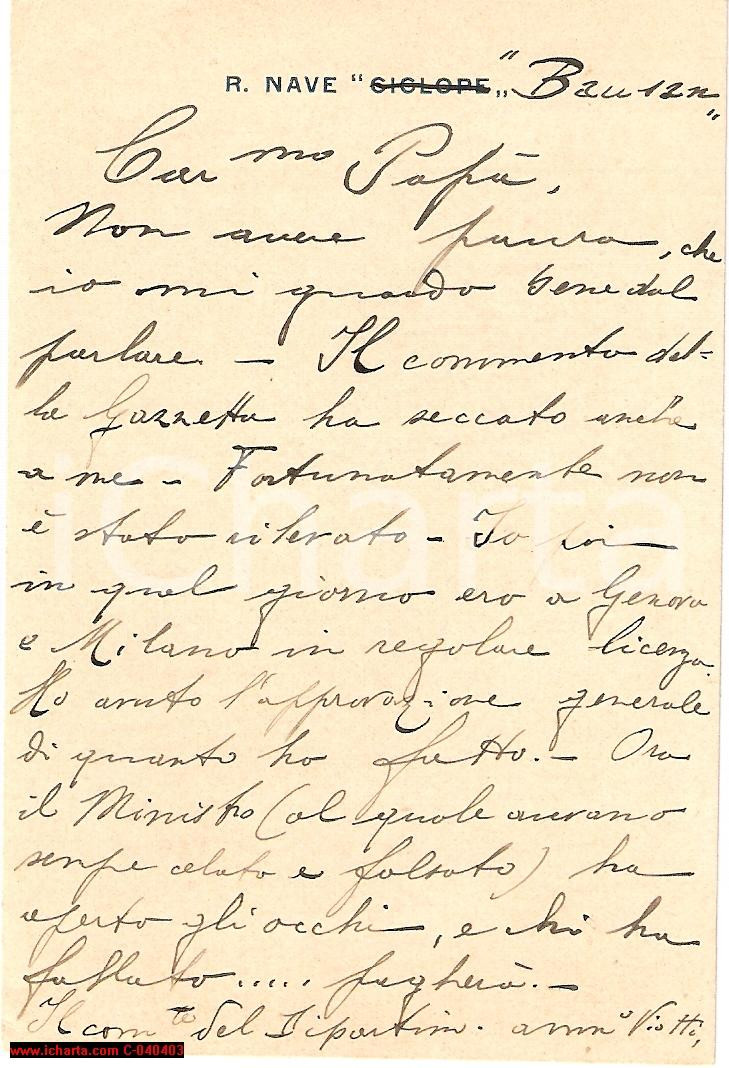 R. NAVE "CICLOPE" "Bausan"
Car mo Papà,
Non avere paura, che
io mi guardo bene dal
parlare. — Il commento del=
la Gazzetta ha seccato anche
a me — Fortunatamente non
è stato rilevato — Io poi
in quel giorno ero a Genova
e Milano in regolare licenza.
Ho avuto l'approvazione generale
di quanto ho fatto. — Ora
il Ministro (al quale avevano
sempre celato e falsato) ha
aperto gli occhi, e chi ha
fallato ..... pagherà. —
Il com te del Dipartim. amm o Viotti,
iCharta
www.icharta.com C-040403